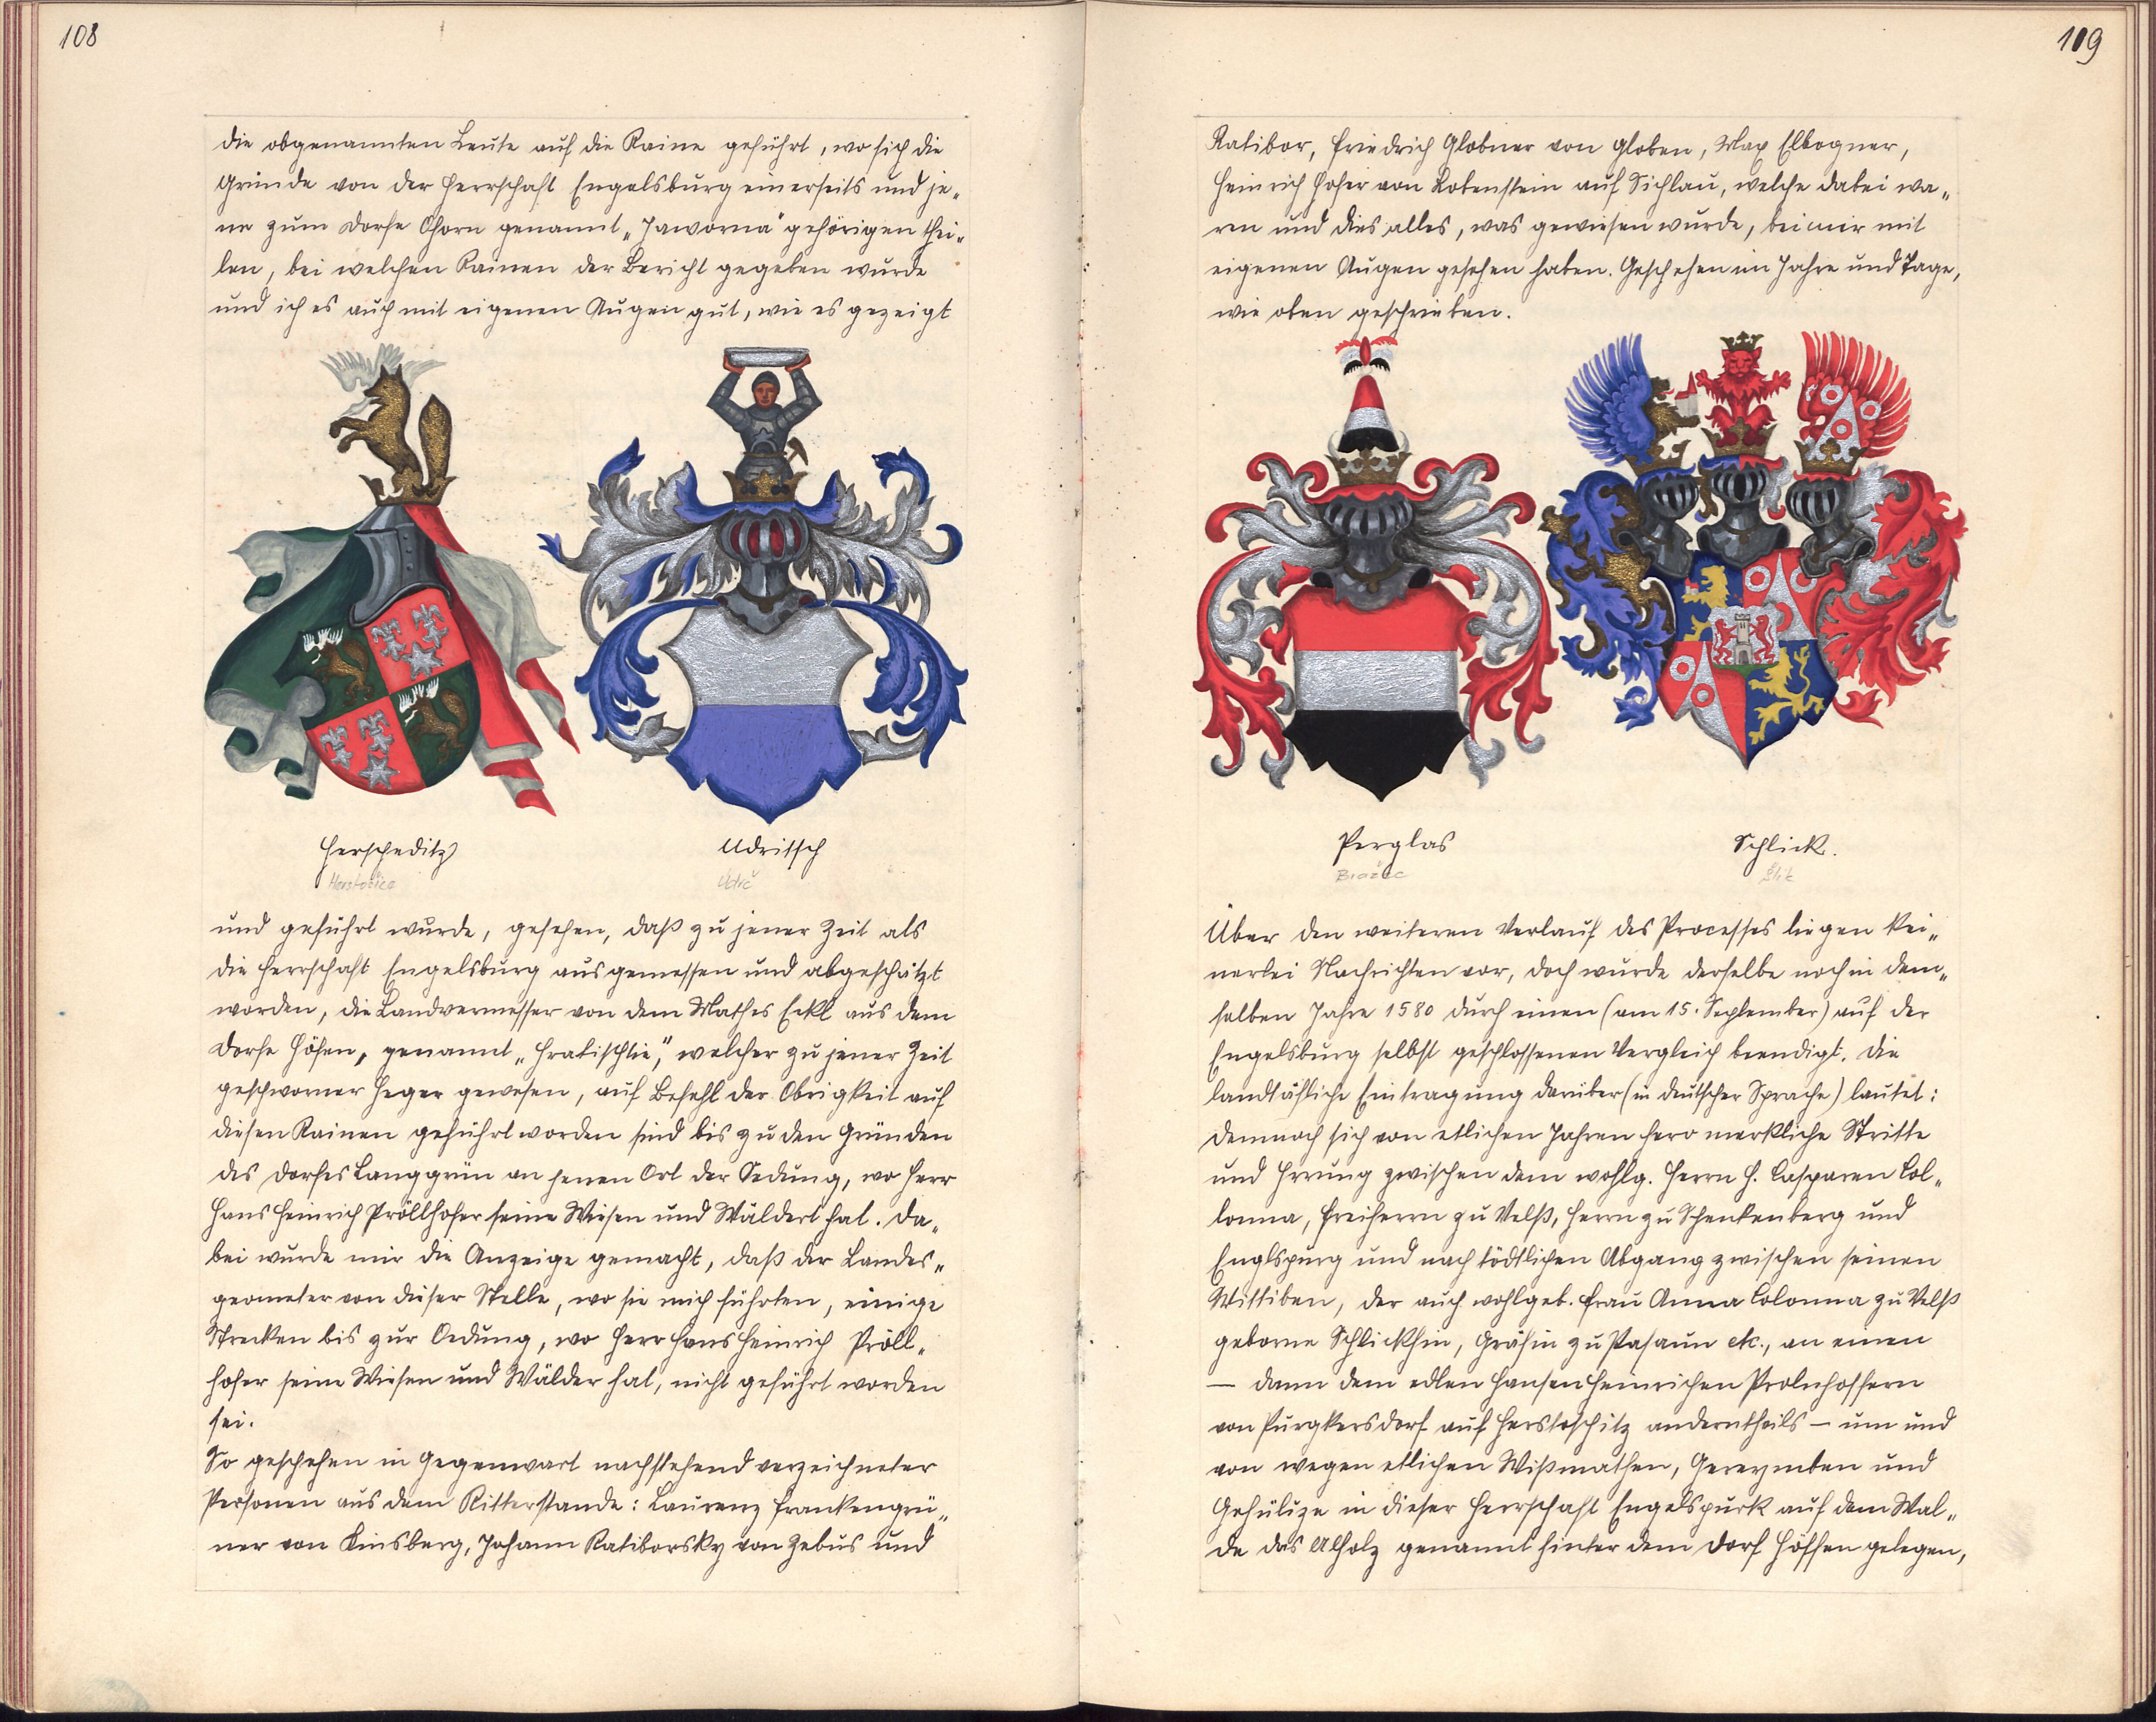 108
die obgenannten Leute auf die Raine geführt, wo sich die
Gründe von der Herrschaft Engelsburg einerseits und je„
ne zum Dorfe Ohorn genannt „Jaworna“ gehörigen thei„
len, bei welchen Rainen der Bericht gegeben wurde
und ich es auch mit eigenen Augen gut, wie es gezeigt
Herscheditz
Udritsch
Údrč
und geführt wurde, gesehen, daß zu jener Zeit als
die Herrschaft Engelsburg ausgemessen und abgeschätzt
worden, die Landvermesser von dem Mathes Eckl aus dem
Dorfe Höfen, genannt „Hratischtie“, welcher zu jener Zeit
geschworner Heger gewesen, auf Befehl der Obrigkeit auf
diesen Rainen geführt worden sind bis zu den Gründen
des Dorfes Langgrün an jenen Ort der Oedung, wo Herr
Hans Heinrich Pröllhofer seine Wiesen und Wälder hat. Da„
bei wurde mir die Anzeige gemacht, daß der Landes„
geometer von dieser Stelle, wo sie mich führten, einige
Strecken bis zur Oedung, wo Herr Hans Heinrich Pröll„
hofer seine Wiesen und Wälder hat, nicht geführt worden
sei.
So geschehen in Gegenwart nachstehend verzeichneter
Personen aus dem Ritterstande: Laurenz Frankengrü„
ner von Kinsberg, Johann Ratiborsky von Zebus und
109
Ratibor, Friedrich Globner von Globen, Max Elbogner,
Heinrich Hofer von Lobenstein auf Sichlau, welche dabei wa„
ren und dies alles, was gewiesen wurde, bei mir mit
eigenen Augen gesehen haben. Geschehen im Jahre und Tage,
wie oben geschrieben.
Perglas
Schlick.
Šlik
Über den weiteren Verlauf des Processes liegen kei„
nerlei Nachrichten vor, doch wurde derselbe noch in dem„
selben Jahre 1580 durch einen (am 15. September) auf der
Engelsburg selbst geschlossenen Vergleich beendigt. Die
landtäfliche Eintragung darüber (in deutscher Sprache) lautet:
Demnach sich von etlichen Jahren hero merkliche Stritte
und Irrung zwischen dem wohlg. Herrn H. Casparen Col„
lonna, Freiherrn zu Velß, Herrn zu Schenkenberg und
Englspurg und nach tödtlichen Abgang zwischen seinen
Wittiben, der auch wohlgeb. Frau Anna Colonna zu Velß
geborne Schlickhin, Gräfin zu Pasaun etc., an einen
— dann dem edlen Hansen Heinrichen Prolnhoffern
von Purgkersdorf auf Herstoschitz anderntheils — um und
von wegen etlichen Wißmathen, Gereymben und
Gehülze in dieser Herrschaft Engelspurk auf dem Wal„
de das Alholz genannt hinter dem Dorf Höffen gelegen,